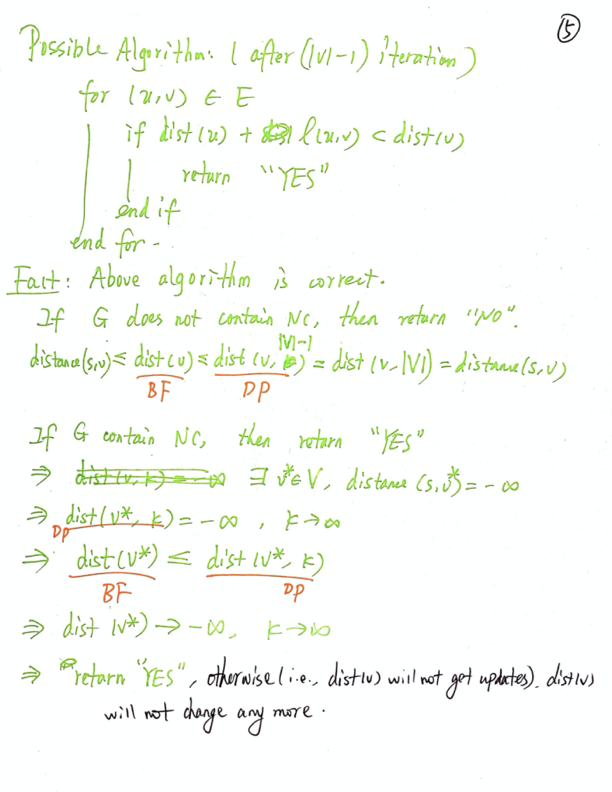 ⑤
Possible Algorithm: ( after (|V|-1) iteration )
for (u,v) ∈ E
if dist(u) + l(u,v) < dist(v)
return "YES"
end if
end for -
Fact: Above algorithm is correct.
If G does not contain NC, then return "NO".
|V|-1
distance(s,v) ≤ dist(v) ≤ dist(v, ) = dist(v, |V|) = distance(s,v)
BF DP
If G contain NC, then return "YES"
⇒ dist(v,k) = -∞ ∃ v*∈V, distance(s,v*) = -∞
⇒ dist(v*, k) = -∞ , k→∞
DP
⇒ dist(v*) ≤ dist(v*, k)
BF DP
⇒ dist(v*) → -∞, k→∞
⇒ return "YES", otherwise (i.e., dist(v) will not get updates), dist(v)
will not change any more.